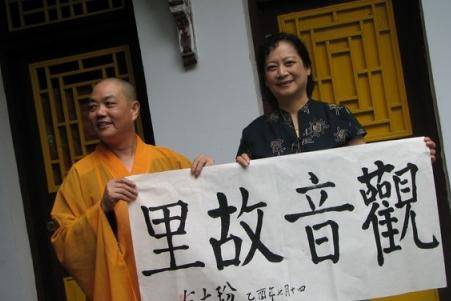 觀音故里
乙酉年七月十四